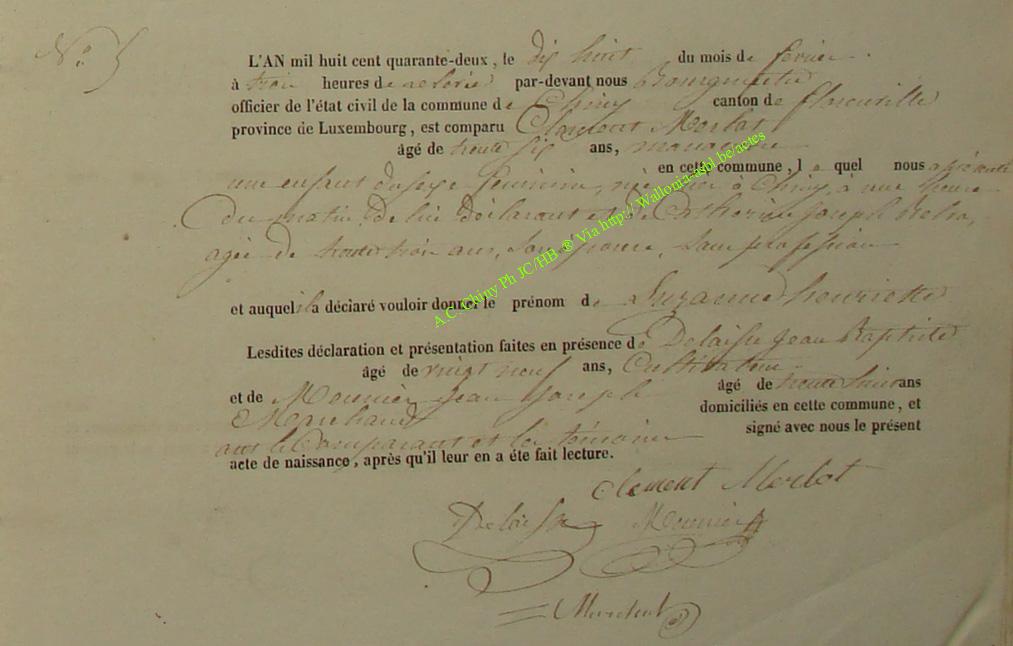 No. 5
L'AN mil huit cent quarante-deux, le dix huit du mois de fevrier
à trois heures de relevée par-devant nous Bourgmestre
officier de l'état civil de la commune de Chiny canton de florenville
province de Luxembourg, est comparu Clement Merlot
âgé de trente six ans,
en cette commune, le quel nous a présenté
une enfant du sexe feminin, née hier à Chiny, à une heure
du matin, de lui déclarant et de Catherine Joseph
agée de trente trois ans, son épouse, sans profession
et auquel il a déclaré vouloir donner le prénom de Suzanne henriette
Lesdites déclaration et présentation faites en présence de Delaisse Jean Baptiste
âgé de vingt neuf ans, Cultivateur
et de Meunier Jean Joseph âgé de trente huit ans
Marchand domiciliés en cette commune, et
ont le Comparant et les témoins signé avec nous le présent
acte de naissance, après qu'il leur en a éte fait lecture.
Clement Merlot
Delaisse Meunier
A.C. Chiny Ph JC/HB ® Via http:// Wallonia-asbl.be/actes